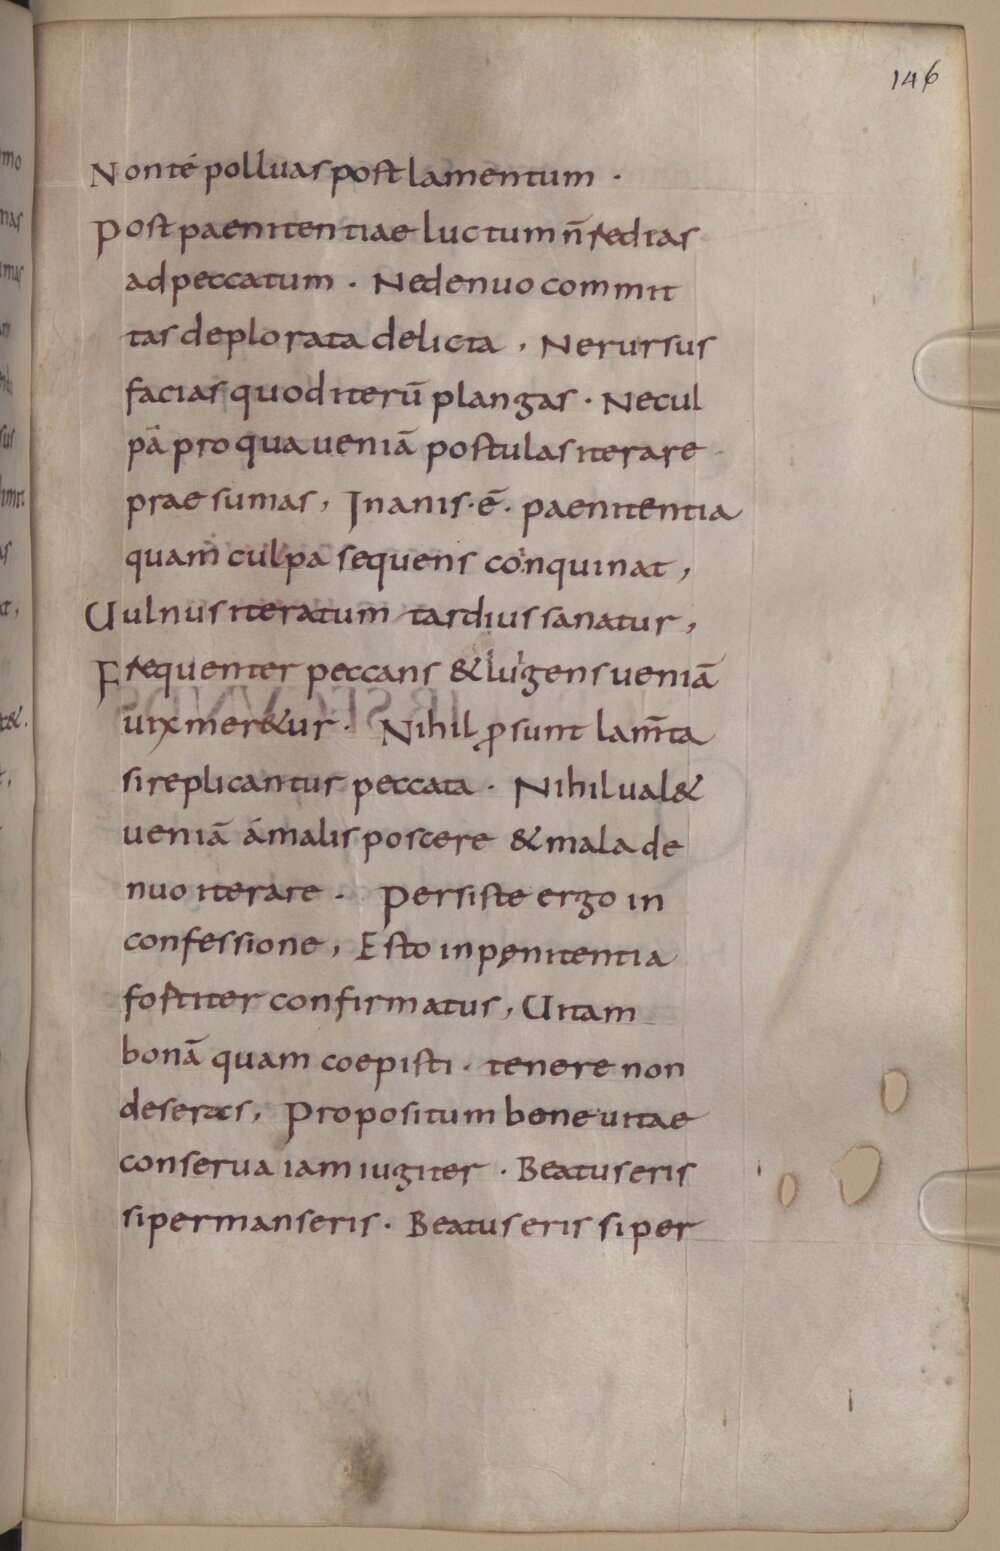 146
Non té polluas post lamentum ·
Post paenitentiae luctum n̄ redias
ad peccatum · Ne denuo commit
tas deplorata delicta , Ne rursus
facias quod iterū plangas · Ne cul
pā pro qua ueniā postulas iterare
praesumas , Inanis · ē · paenitentia
quam culpa sequens coinquinat ,
Uulnus iteratum tardius sanatur ,
Frequenter peccans & lugens ueniā
uix mer&ur · Nihil ꝓsunt lam̄ta
si replicantur peccata · Nihil ual&
ueniā á malis poscere & mala de
nuo iterare · Persiste ergo in
confessione , Esto in pęnitentia
fortiter confirmatus , Uitam
bonā quam coepisti · tenere non
deseras , Propositum bone uitae
conserua iam iugiter · Beatus eris
si permanseris · Beatus eris si per